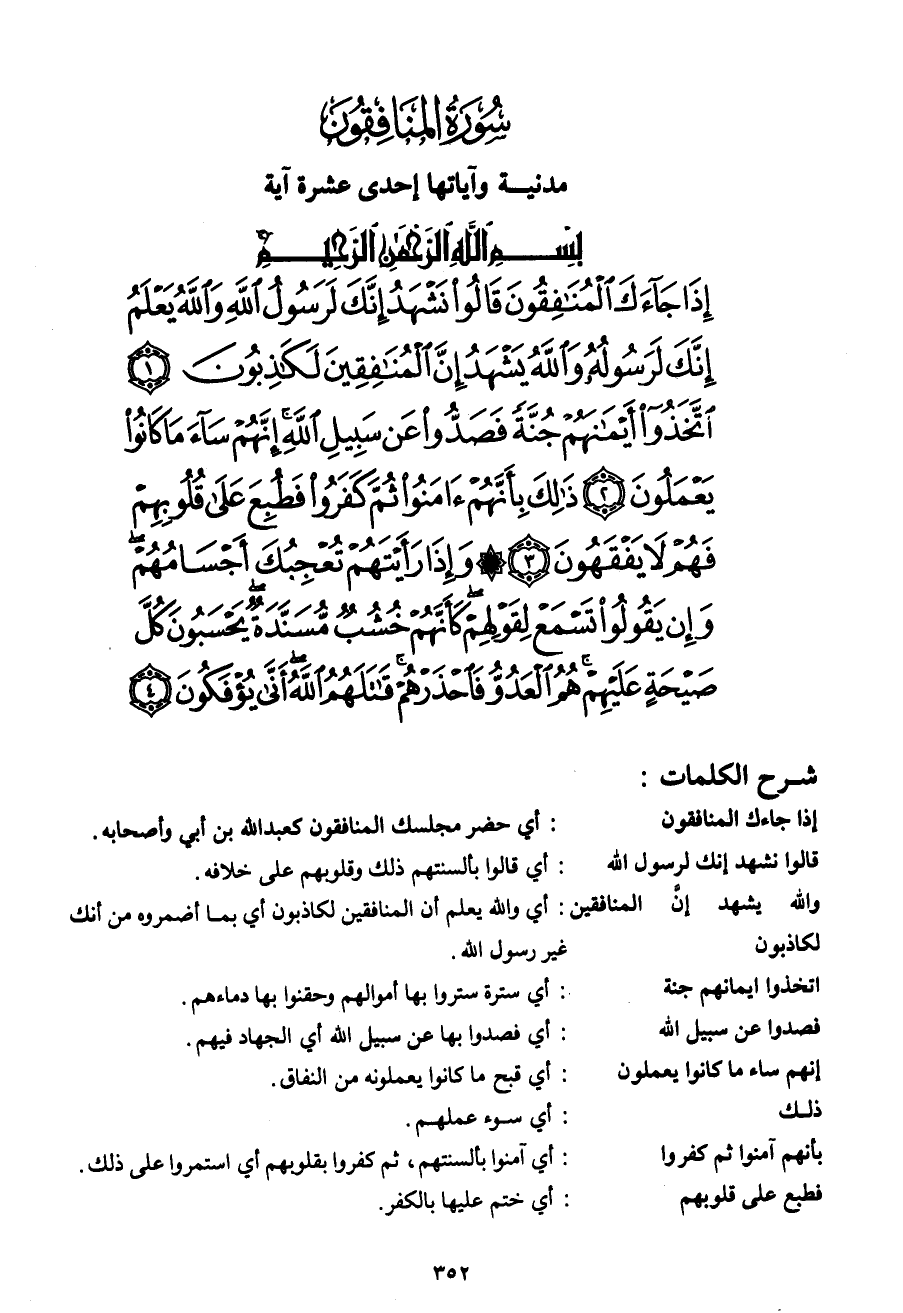 سُورَةُ المُنَافِقُون
مدنيـة وآياتها إحدى عشرة آية
بِسْمِ ٱللَّهِ ٱلرَّحْمَٰنِ ٱلرَّحِيمِ
إِذَا جَآءَكَ ٱلْمُنَٰفِقُونَ قَالُوا۟ نَشْهَدُ إِنَّكَ لَرَسُولُ ٱللَّهِ وَٱللَّهُ يَعْلَمُ
إِنَّكَ لَرَسُولُهُۥ وَٱللَّهُ يَشْهَدُ إِنَّ ٱلْمُنَٰفِقِينَ لَكَٰذِبُونَ ١
ٱتَّخَذُوٓا۟ أَيْمَٰنَهُمْ جُنَّةً فَصَدُّوا۟ عَن سَبِيلِ ٱللَّهِ ۚ إِنَّهُمْ سَآءَ مَا كَانُوا۟
يَعْمَلُونَ ٢ ذَٰلِكَ بِأَنَّهُمْ ءَامَنُوا۟ ثُمَّ كَفَرُوا۟ فَطُبِعَ عَلَىٰ قُلُوبِهِمْ
فَهُمْ لَا يَفْقَهُونَ ٣ ۞ وَإِذَا رَأَيْتَهُمْ تُعْجِبُكَ أَجْسَامُهُمْ ۖ
وَإِن يَقُولُوا۟ تَسْمَعْ لِقَوْلِهِمْ ۖ كَأَنَّهُمْ خُشُبٌ مُّسَنَّدَةٌ ۖ يَحْسَبُونَ كُلَّ
صَيْحَةٍ عَلَيْهِمْ ۚ هُمُ ٱلْعَدُوُّ فَٱحْذَرْهُمْ ۚ قَٰتَلَهُمُ ٱللَّهُ ۖ أَنَّىٰ يُؤْفَكُونَ ٤
شـرح الكلمات :
إذا جاءك المنافقون : أي حضر مجلسك المنافقون كعبدالله بن أبي وأصحابه.
قالوا نشهد إنك لرسول الله : أي قالوا بألسنتهم ذلك وقلوبهم على خلافه.
والله يشهد إنَّ المنافقين : أي والله يعلم أن المنافقين لكاذبون أي بمـا أضمروه من أنك
لكاذبون غير رسول الله.
اتخذوا ايمانهم جنة : أي سترة ستروا بها أموالهم وحقنوا بها دماءهم.
فصدوا عن سبيل الله : أي فصدوا بها عن سبيل الله أي الجهاد فيهم.
إنهم ساء ما كانوا يعملون : أي قبح ما كانوا يعملونه من النفاق.
ذلـك : أي سـوء عملهـم.
بأنهم آمنوا ثم كفروا : أي آمنوا بألسنتهم، ثم كفروا بقلوبهم أي استمروا على ذلك.
فطبع على قلوبهم : أي ختم عليها بالكفر.
٣٥٢